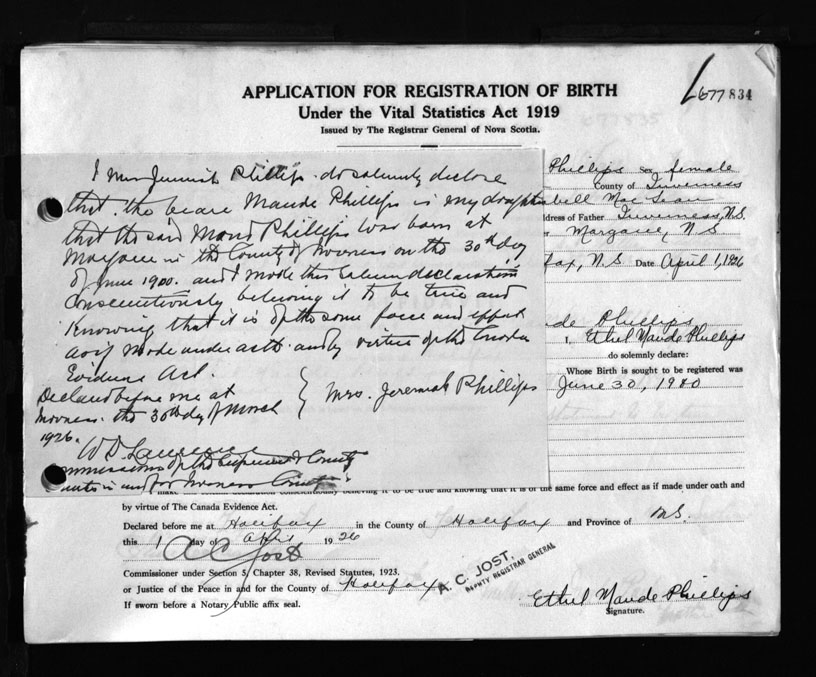 APPLICATION FOR REGISTRATION OF BIRTH
Under the Vital Statistics Act 1919
Issued by The Registrar General of Nova Scotia.
677 834
I Mrs Jeremiah Phillips do solemnly declare
that the beare Maude Phillips is my daughter
that the said Maud Phillips was born at
Margaree in the County of Inverness on the 30th day
of June 1900. and I made this Solemn declaration
conscientiously believing it to be true and
Knowing that it is of the same force and effect
as if made under oath and by virtue of the Canada
Evidence Act.
Declared before me at
Inverness the 30th day of March
1926.
Mrs. Jeremiah Phillips
W D Lawrence
Commissioner of the Supreme & County
Courts in and for Inverness County
Phillips a female
County of Inverness
bell Mac Lean
dress of Father Inverness, N.S.
Margaree, N S
fax, N.S Date April 1, 1926
de Phillips
I, Ethel Maude Phillips
do solemnly declare:
Whose Birth is sought to be registered was
June 30, 1900
make this solemn declaration conscientiously believing it to be true and knowing that it is of the same force and effect as if made under oath and
by virtue of The Canada Evidence Act.
Declared before me at Halifax in the County of Halifax and Province of N.S.
this 1 day of April 1926
A C Jost
Commissioner under Section 5, Chapter 38, Revised Statutes, 1923.
or Justice of the Peace in and for the County of Halifax
If sworn before a Notary Public affix seal.
A. C. JOST,
DEPUTY REGISTRAR GENERAL
Ethel Maude Phillips
Signature.